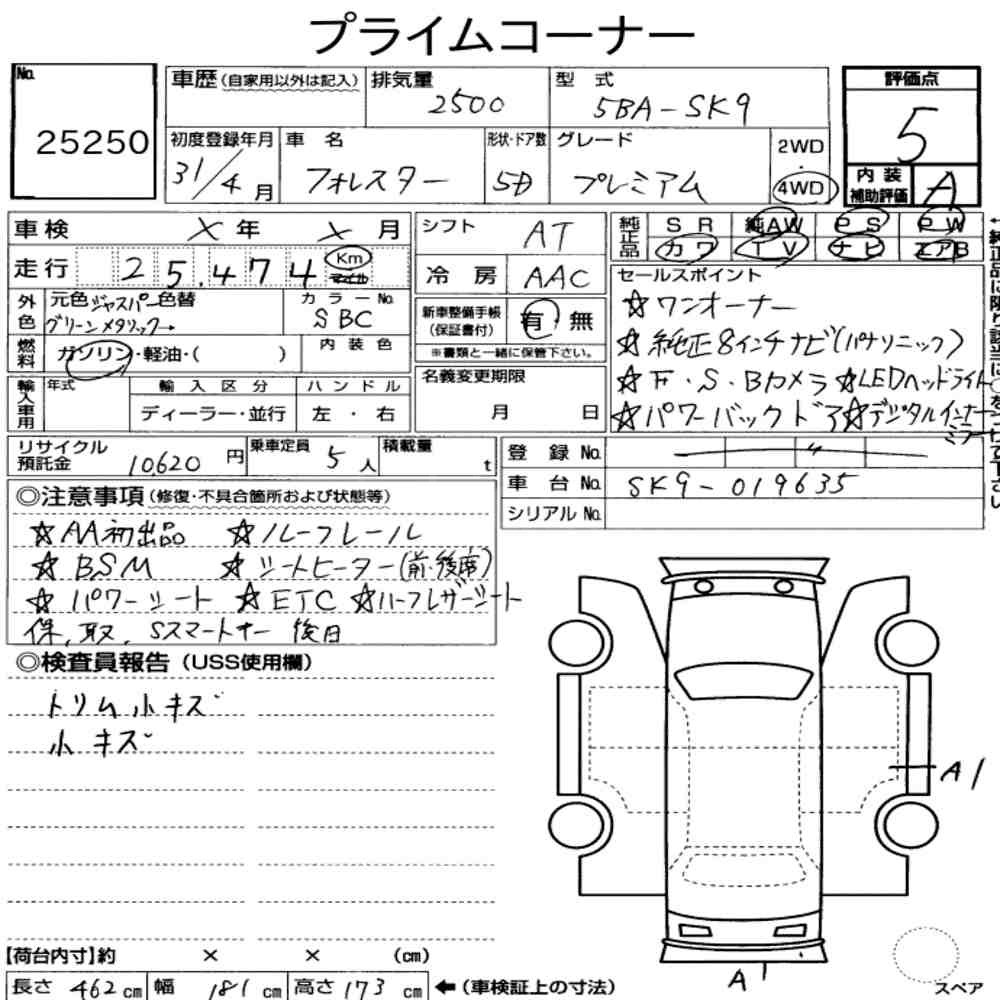 プライムコーナー
No. 25250
車歴(自家用以外は記入) 排気量 2500 型式 5BA-SK9
初度登録年月 31/4月 車名 フォレスター 形状・ドア数 5D グレード プレミアム 2WD 4WD
評価点 5
内装補助評価 A
車検 X年 X月
走行 25,474 Km マイル
外色 元色 ジャスパーグリーンメタリック→ 色替 カラーNo. SBC
燃料 ガソリン・軽油・( ) 内装色
輸入車用 年式 輸入区分 ディーラー・並行 ハンドル 左・右
シフト AT
冷房 AAC
新車整備手帳(保証書付) 有・無
※書類と一緒に保管下さい。
名義変更期限 月 日
純正品 SR 純AW PS PW
カワ TV ナビ エアB
セールスポイント
☆ワンオーナー
☆純正8インチナビ(パナソニック)
☆F・S・Bカメラ ☆LEDヘッドライト
☆パワーバックドア ☆デジタルインナーミラー
リサイクル預託金 10,620円 乗車定員 5人 積載量 t
登録No. 〃
車台No. SK9-019635
シリアルNo.
◎注意事項(修復・不具合箇所および状態等)
☆AA初出品 ☆ルーフレール
☆BSM ☆シートヒーター(前・後席)
☆パワーシート ☆ETC ☆ハーフレザーシート
保、取、Sスマートキー 後日
◎検査員報告(USS使用欄)
トリム小キズ
小キズ
A1
A1
スペア
【荷台内寸】約 × × (cm)
長さ 462cm 幅 181cm 高さ 173cm ←(車検証上の寸法)